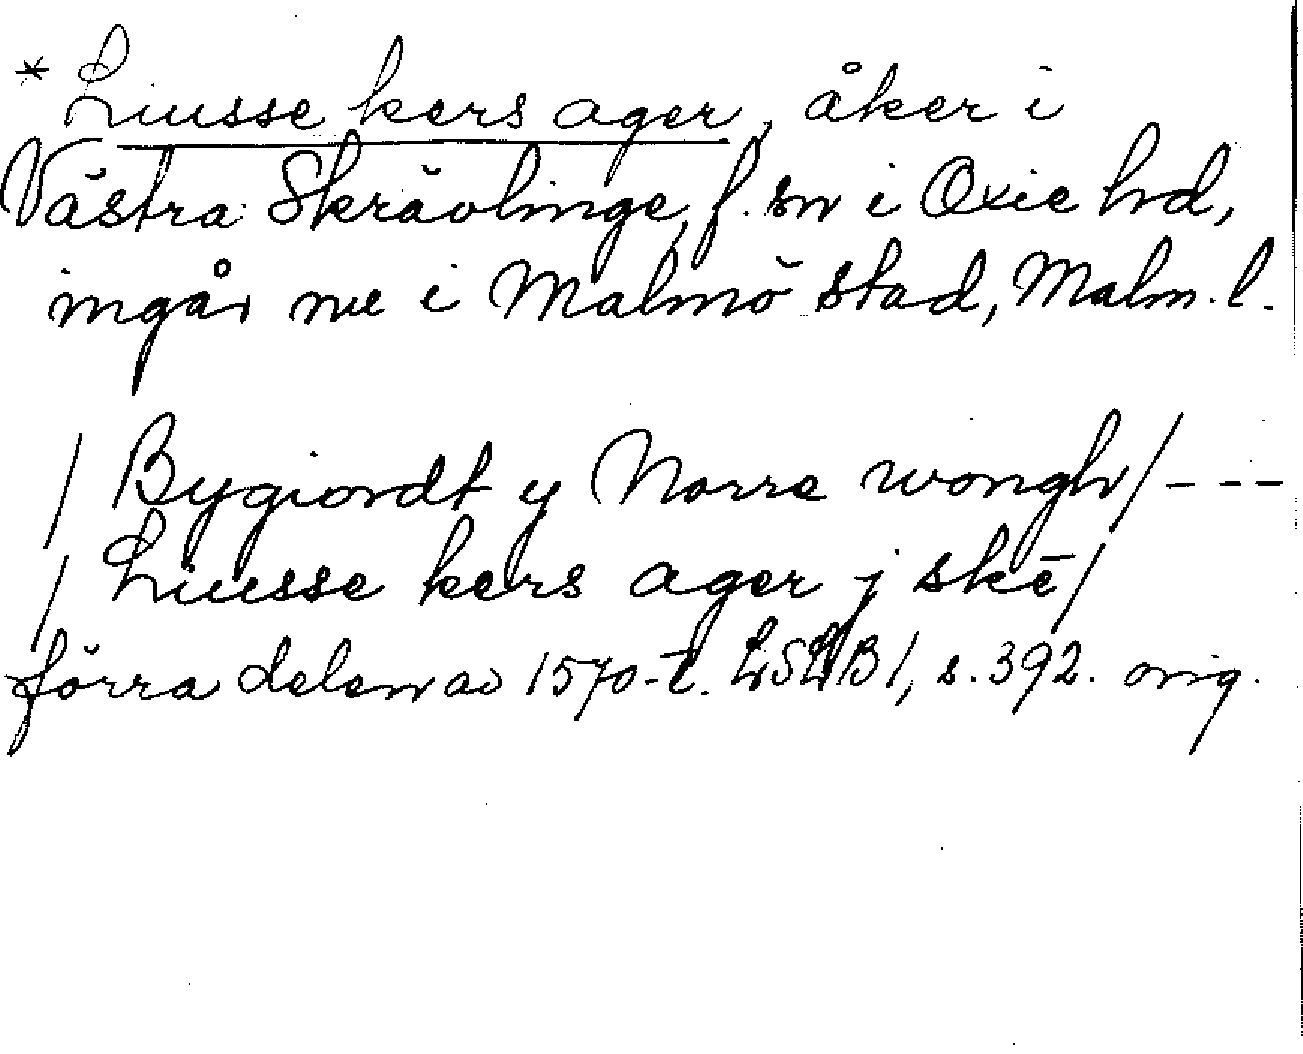 * Liusse kers ager, åker i
Västra Skrävlinge, f. sn i Oxie hd,
ingår nu i Malmö stad, Malm. l.
/ Bygiordt y Norre wongh / ---
/ Liusse kers ager j skē /
förra delen av 1570-t. LSLB 1, s. 392. orig.